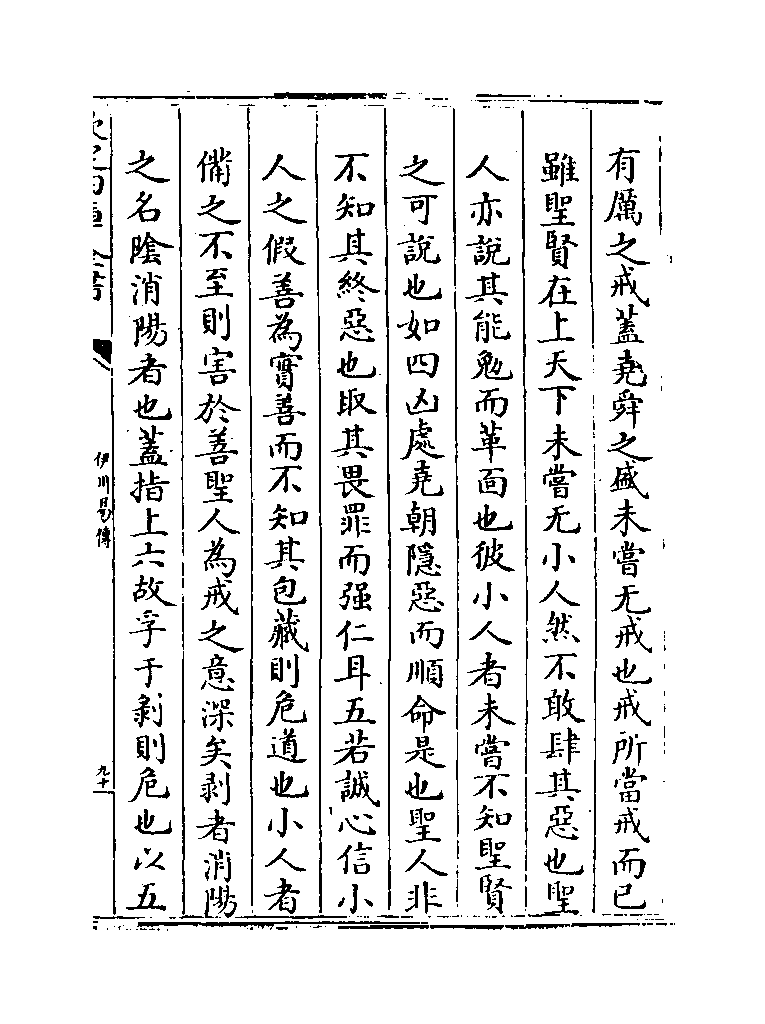 有厲之戒蓋堯舜之盛未嘗无戒也戒所當戒而已
雖聖賢在上天下未嘗无小人然不敢肆其惡也聖
人亦說其能勉而革面也彼小人者未嘗不知聖賢
之可說也如四凶處堯朝隱惡而順命是也聖人非
不知其終惡也取其畏罪而强仁耳五若誠心信小
人之假善為實善而不知其包藏則危道也小人者
備之不至則害於善聖人為戒之意深矣剥者消陽
之名陰消陽者也蓋指上六故孚于剥則危也以五
伊川易傳
九十